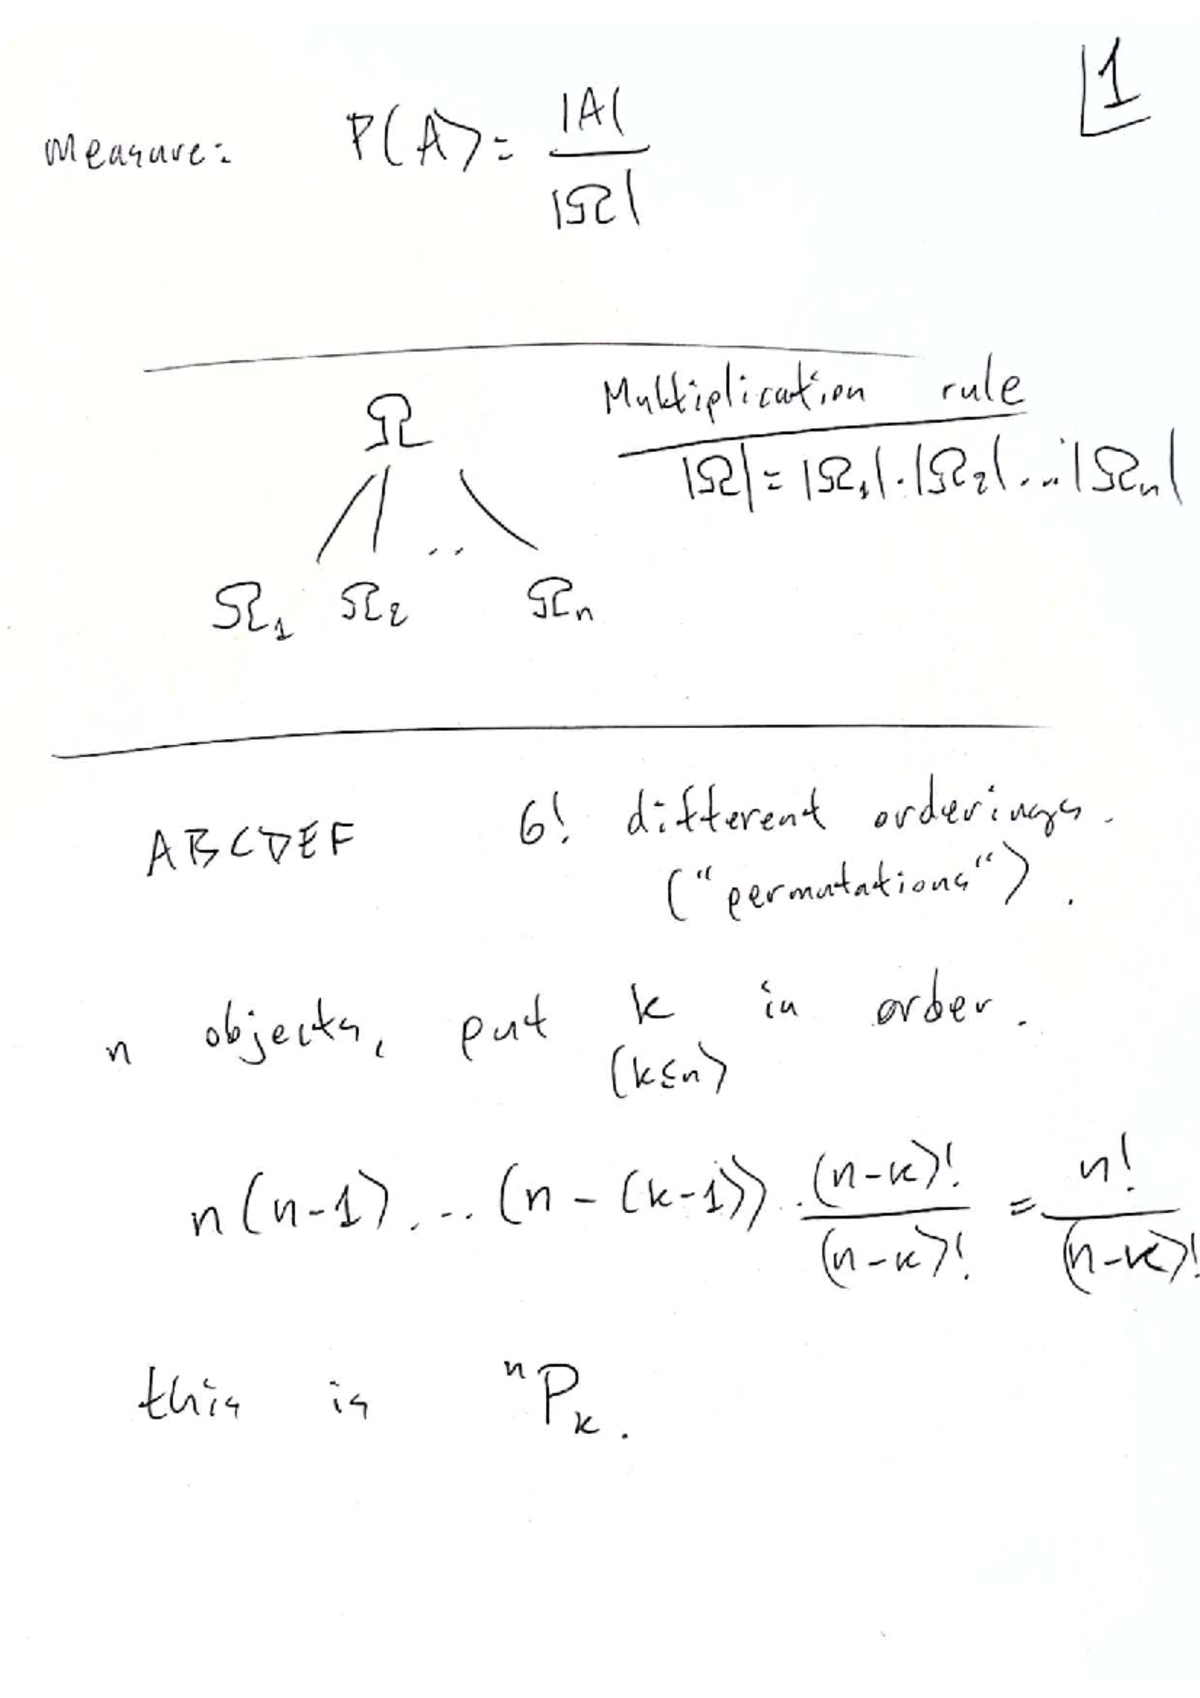 1
Measure: P(A) = |A| / |Ω|
Multiplication rule
Ω
|Ω| = |Ω₁|·|Ω₂|...·|Ωₙ|
Ω₁ Ω₂ .. Ωₙ
ABCDEF 6! different orderings.
("permutations").
n objects, put k in order.
(k≤n)
n(n-1)...(n-(k-1))·(n-k)!/(n-k)! = n!/(n-k)!
this is ⁿPₖ.